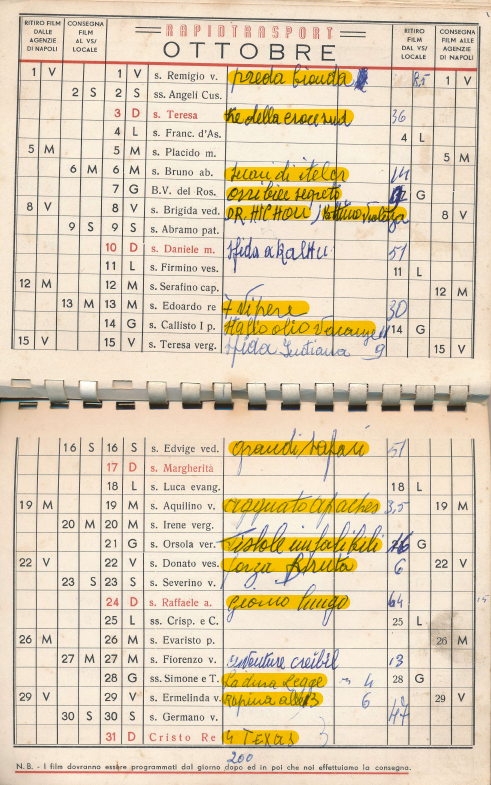 RITIRO FILM DALLE AGENZIE DI NAPOLI
CONSEGNA FILM AL VS/ LOCALE
RAPIDTRASPORT
OTTOBRE
RITIRO FILM DAL VS/ LOCALE
CONSEGNA FILM ALLE AGENZIE DI NAPOLI
1 V 1 V s. Remigio v. preda bionda 85 1 V
2 S 2 S ss. Angeli Cus.
3 D s. Teresa tre della croce sud 36
4 L s. Franc. d'As. 4 L
5 M 5 M s. Placido m. 5 M
6 M 6 M s. Bruno ab. 14
7 G B.V. del Ros. segreto G
8 V 8 V s. Brigida ved. DR. HICHCOCK 8 V
9 S 9 S s. Abramo pat.
10 D s. Daniele m. sfida a 51
11 L s. Firmino ves. 11 L
12 M 12 M s. Serafino cap. 12 M
13 M 13 M s. Edoardo re 7 Vipere 30
14 G s. Callisto I p. 14 G
15 V 15 V s. Teresa verg. sfida 9 15 V
16 S 16 S s. Edvige ved. grandi safari 51
17 D s. Margherita
18 L s. Luca evang. 18 L
19 M 19 M s. Aquilino v. agguato apaches 3,5 19 M
20 M 20 M s. Irene verg.
21 G s. Orsola ver. Pistole infallibili 21 G
22 V 22 V s. Donato ves. forza bruta 6 22 V
23 S 23 S s. Severino v.
24 D s. Raffaele a. giorno lungo 64
25 L ss. Crisp. e C. 25 L
26 M 26 M s. Evaristo p. 26 M
27 M 27 M s. Fiorenzo v. avventure 13
28 G ss. Simone e T. La dura Legge 4 28 G
29 V 29 V s. Ermelinda v. Rapina alle 3 6 29 V
30 S 30 S s. Germano v. 47
31 D Cristo Re 4 TEXAS 3
200
N. B. - I film dovranno essere programmati dal giorno dopo ed in poi che noi effettuiamo la consegna.